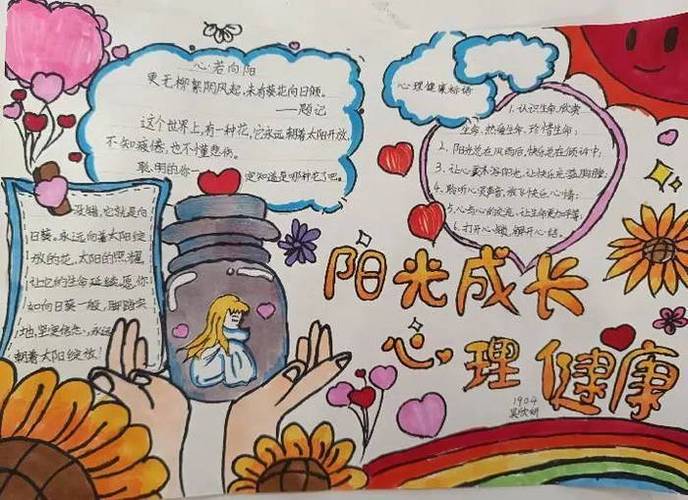 心若向阳
更无柳絮因风起,未有葵花向日倾。
——题记
这个世界上,有一种花,它永远朝着太阳开放,
不知疲倦,也不懂悲伤。
聪明的你一 定知道是哪种花了吧。
没错,它就是向
日葵。永远向着太阳绽
放的花,太阳的照耀
让它的生命延续,愿你
如向日葵一般,脚踏实
地,坚定信念,永远
朝着太阳绽放!
心理健康标语
1、认识生命,欣赏
生命,热爱生命,珍惜生命;
2、阳光总在风雨后,快乐总在倾诉中;
3、让心灵沐浴阳光,让快乐充溢胸膛;
4、聆听心灵声音,放飞快乐心情;
5、心与心的交流,让生命更加平等;
6、打开心锁,解开心结。
阳光成长
心理健康
1904